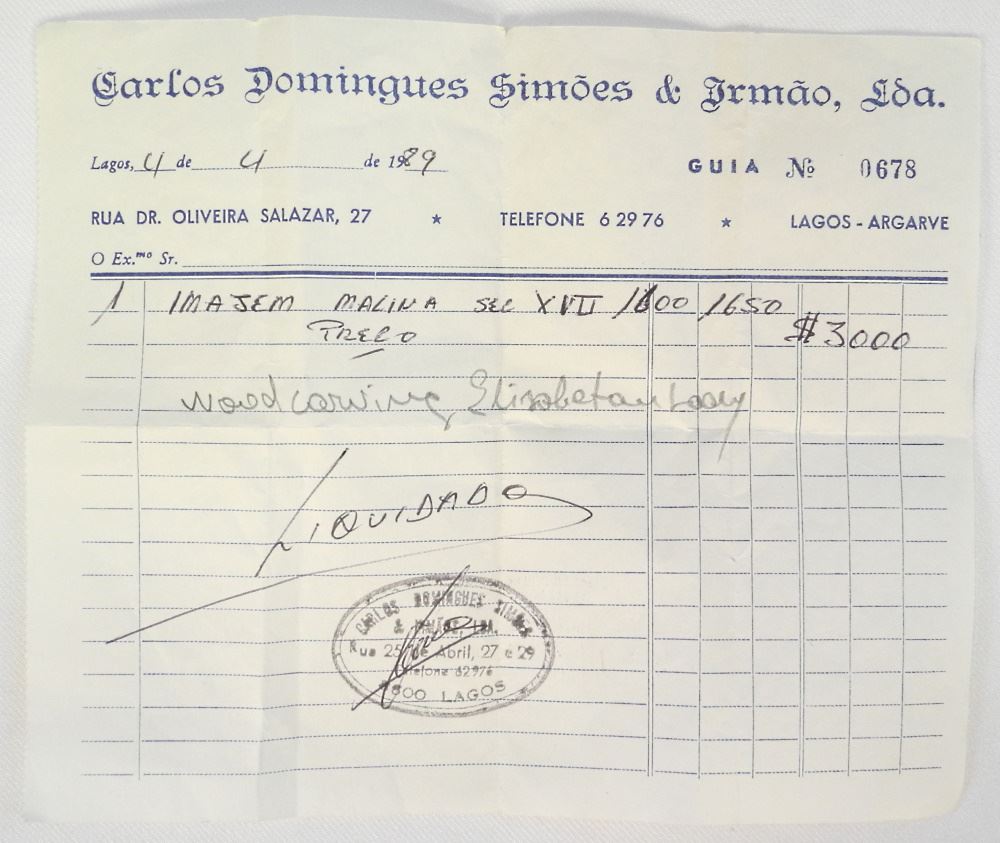 Carlos Domingues Simões & Irmão, Lda.
Lagos, 4 de 4 de 1989
GUIA Nº 0678
RUA DR. OLIVEIRA SALAZAR, 27 * TELEFONE 6 29 76 * LAGOS - ARGARVE
O Ex.mo Sr.
1 IMAJEM MALINA SEC XVII 1600 /1650
PREÇO $ 3000
woodcarving Elisabetan Lady
LIQUIDADO
CARLOS DOMINGUES SIMÕES
& IRMÃOS, LDA.
Rua 25 de Abril, 27 e 29
Telefone 62976
8600 LAGOS